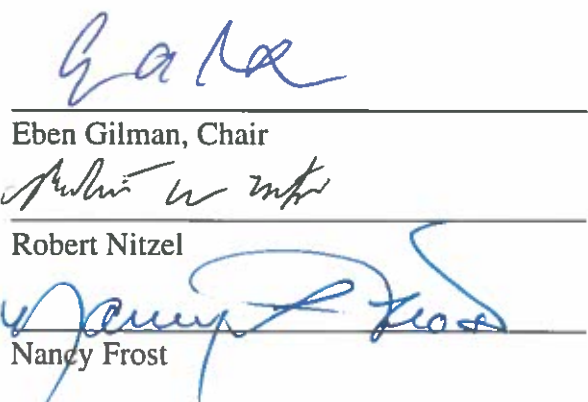 Eben Gilman, Chair
Robert W Nitzel
Robert Nitzel
Nancy P Frost
Nancy Frost